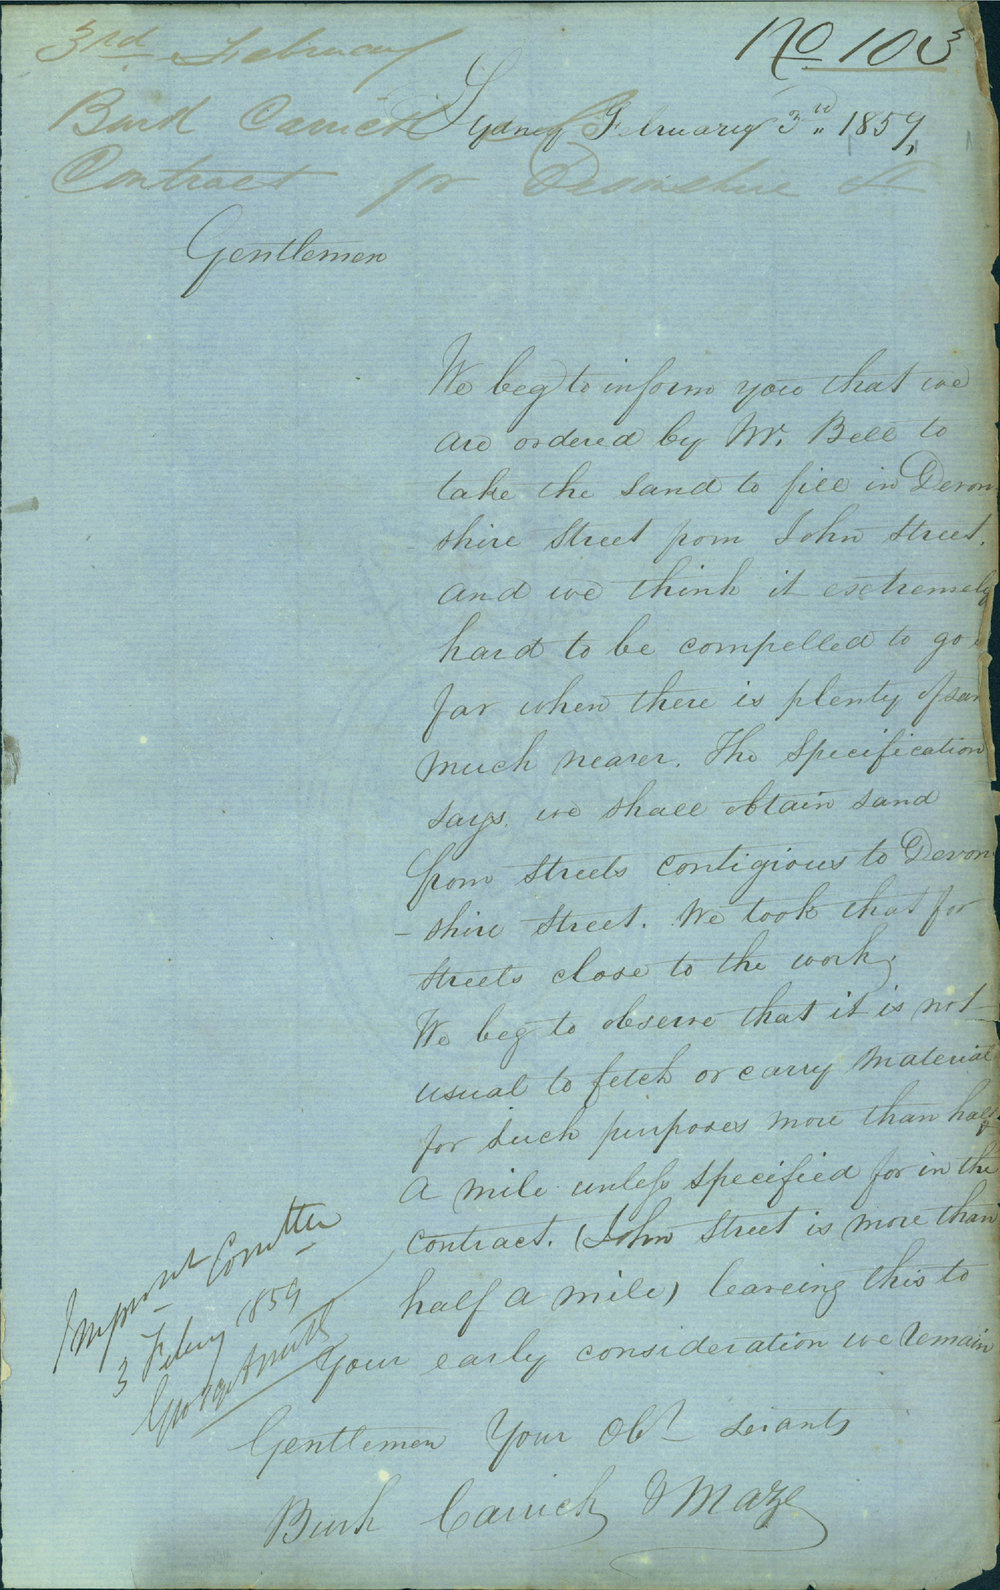 3rd February
No 103
Burk Carrick &
Sydney February 3rd 1859,
Contract for Devonshire St
Gentlemen
We beg to inform you that we
are ordered by Mr. Bell to
take the sand to fill in Devon
shire Street from John Street.
and we think it extremely
hard to be compelled to go
far when there is plenty of san
much nearer. The Specification
says, we shall obtain sand
from streets contigious to Devon
- shire Street. We took that for
streets close to the work,
We beg to observe that it is not
usual to fetch or carry material
for such purposes more than half
a mile unless specified for in the
contract. (John Street is more than
half a mile) leaveing this to
your early consideration we remain
Gentlemen Your Obt servants
Burk Carrick & Maze
Improvt Comttee
3 Febry 1859
George Smith